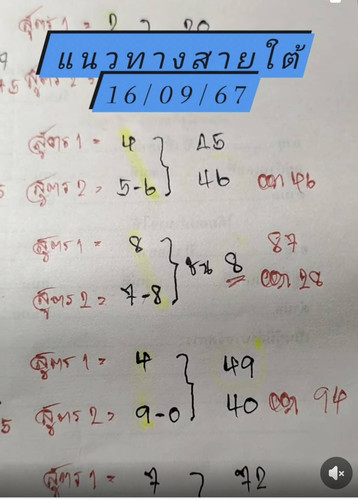 สูตร 1 = 2 20
แนวทางสายใต้
16/09/67
สูตร 1 = 4 45
สูตร 2 = 5-6 46 ออก 46
สูตร 1 = 8 87
ชน 8
สูตร 2 = 7-8 ออก 28
สูตร 1 = 4 49
สูตร 2 = 9-0 40 ออก 94
สูตร 1 = 7 72